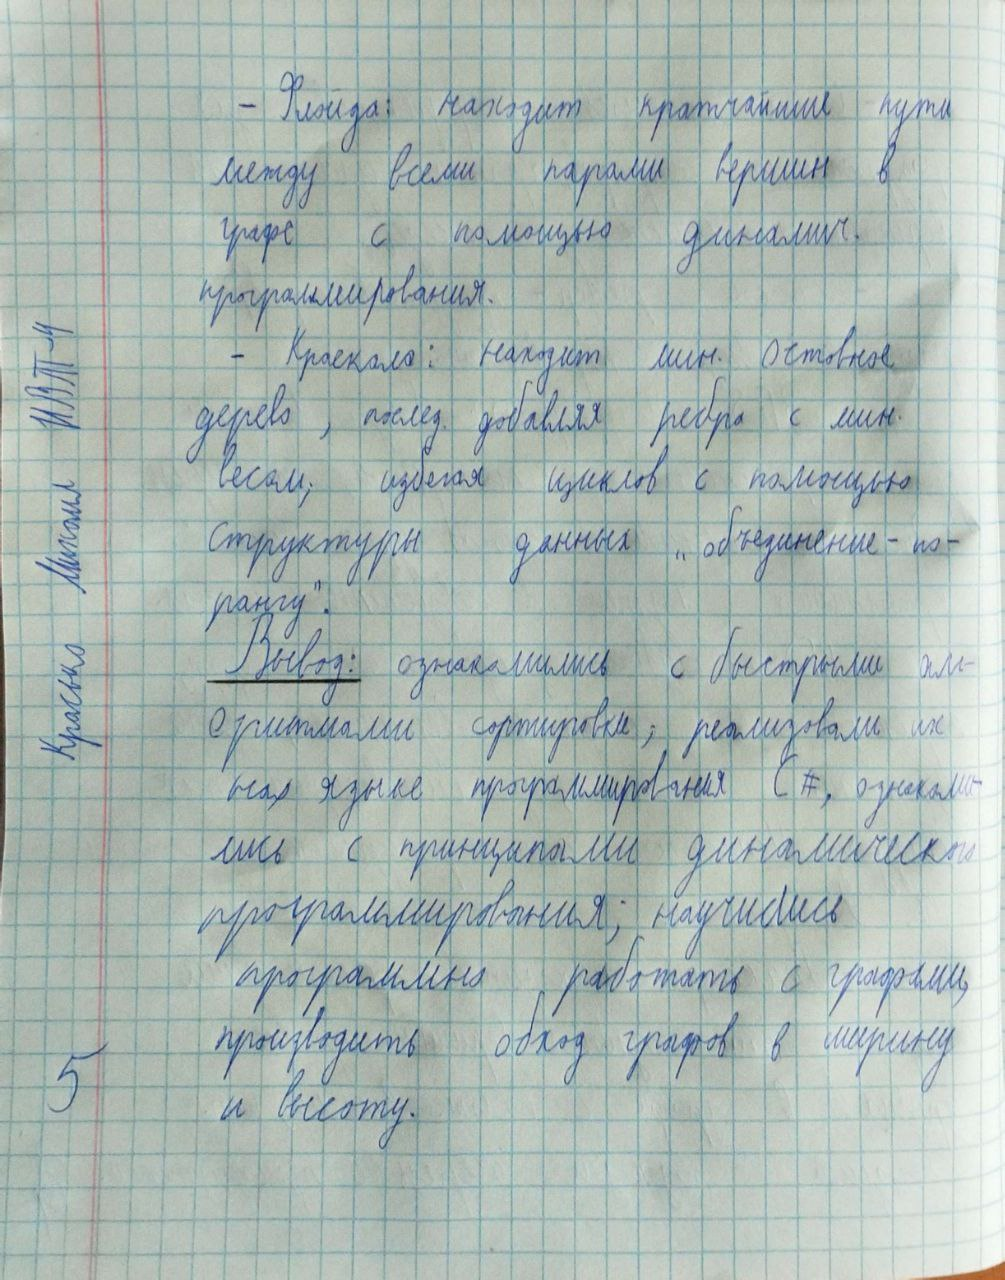 - Флойда: находит кратчайшие пути
между всеми парами вершин в
графе с помощью динамич.
программирования.
- Краскала: находит мин. остовное
дерево, послед. добавляя ребра с мин.
весом, избегая циклов с помощью
структуры данных „объединение-по-
рангу".
Вывод: ознакомились с быстрыми алг-
оритмами сортировки, реализовали их
на языке программирования C#, ознакоми-
лись с принципами динамического
программирования; научились
программно работать с графами,
производить обход графов в ширину
и высоту.
Красько Михаил ИВТ-4
5